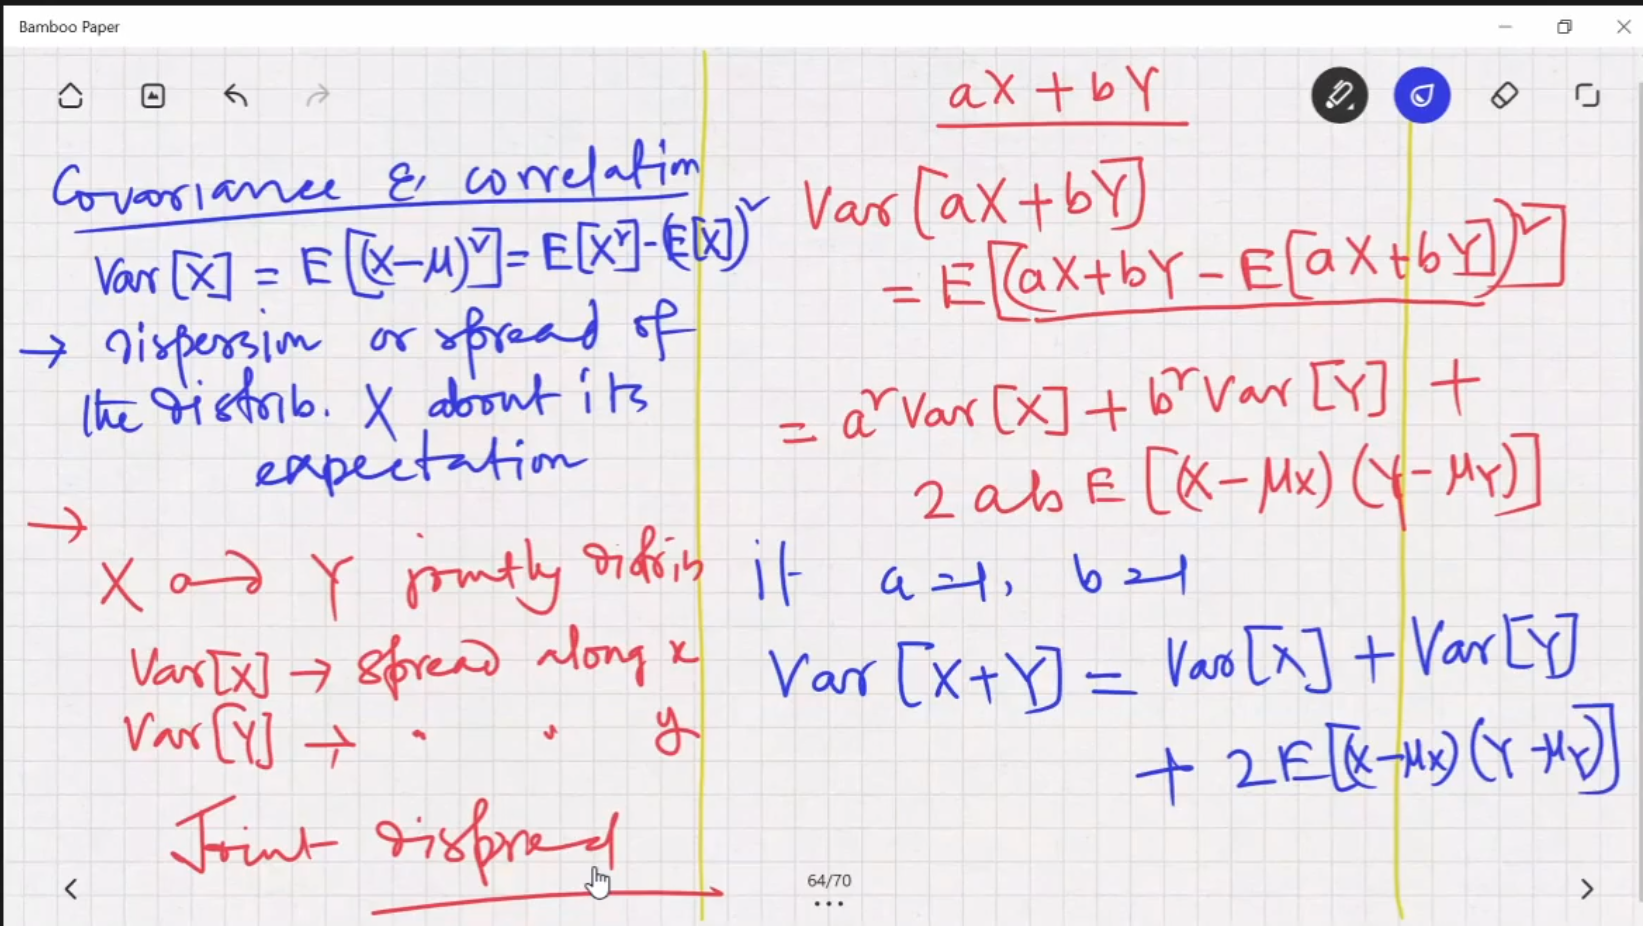 Bamboo Paper
Covariance & correlation
Var[X] = E[(X-μ)²] = E[X²] - (E[X])²
→ dispersion or spread of
the distrib. X about its
expectation
→
X → Y jointly distrib
Var[X] → spread along x
Var[Y] → " " y
Joint dispread
aX + bY
Var[aX+bY]
= E[(aX+bY - E[aX+bY])²]
= a² Var[X] + b² Var[Y] +
2ab E[(X-μx)(Y-μY)]
if a=1, b=1
Var[X+Y] = Var[X] + Var[Y]
+ 2E[(X-μx)(Y-μY)]
64/70